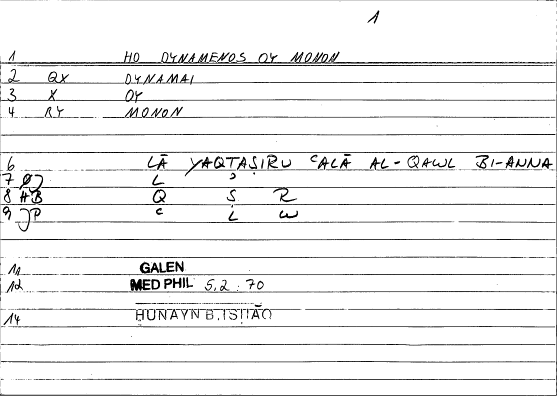 1
1 HO DYNAMENOS OY MONON
2 QX DYNAMAI
3 X OY
4 RY MONON
6 LĀ YAQTAṢIRU ʿALĀ AL-QAWL BI-ANNA
7 L ʾ
8 HB Q Ṣ R
9 JP ʿ L W
11 GALEN
12 MED PHIL 5,2 : 70
14 ḤUNAYN B. ISḤĀQ